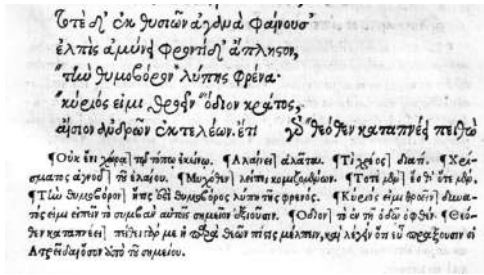 τοτὲ δ' ἐκ θυσιῶν ἀγανὰ φαίνουσ'
ἐλπὶς ἀμύνει φροντίδ' ἄπληστον,
τὴν θυμοβόρον λύπης φρένα·
κύριός εἰμι θροεῖν ὅδιον κράτος,
αἴσιον ἀνδρῶν ἐκτελέων. ἔτι γὰρ θεόθεν καταπνέει πειθὼ
¶Οὐκ ἔνι χώρα] τῷ τόπῳ ἐκείνῳ. ¶Ἀλαίνει] ἀλᾶται. ¶Τί χρέος] διατί. ¶Χρί-
σματος ἁγνοῦ] τοῦ ἐλαίου. ¶Μυχόθεν] λείπει κομιζομένων. ¶Τοτὲ μὲν] ἔσθ' ὅτε μὲν.
¶Τὴν θυμοβόρον] ἥτις ἐστὶ θυμοβόρος λύπη τῆς φρενός. ¶Κύριός εἰμι θροεῖν] δυνα-
τός εἰμι εἰπεῖν τὸ συμβὰν αὐτοῖς σημεῖον ἐξιοῦσιν. ¶Ὅδιον] τὸ ἐν τῇ ὁδῷ ὀφθέν. ¶Θεό-
θεν καταπνέει] πείθει γάρ με ἡ παρὰ θεῶν πίστις μέλπειν, καὶ λέγειν ὅτι εὖ πράξουσιν οἱ
Ἀτρεῖδαι ὅσον ἀπὸ τοῦ σημείου.